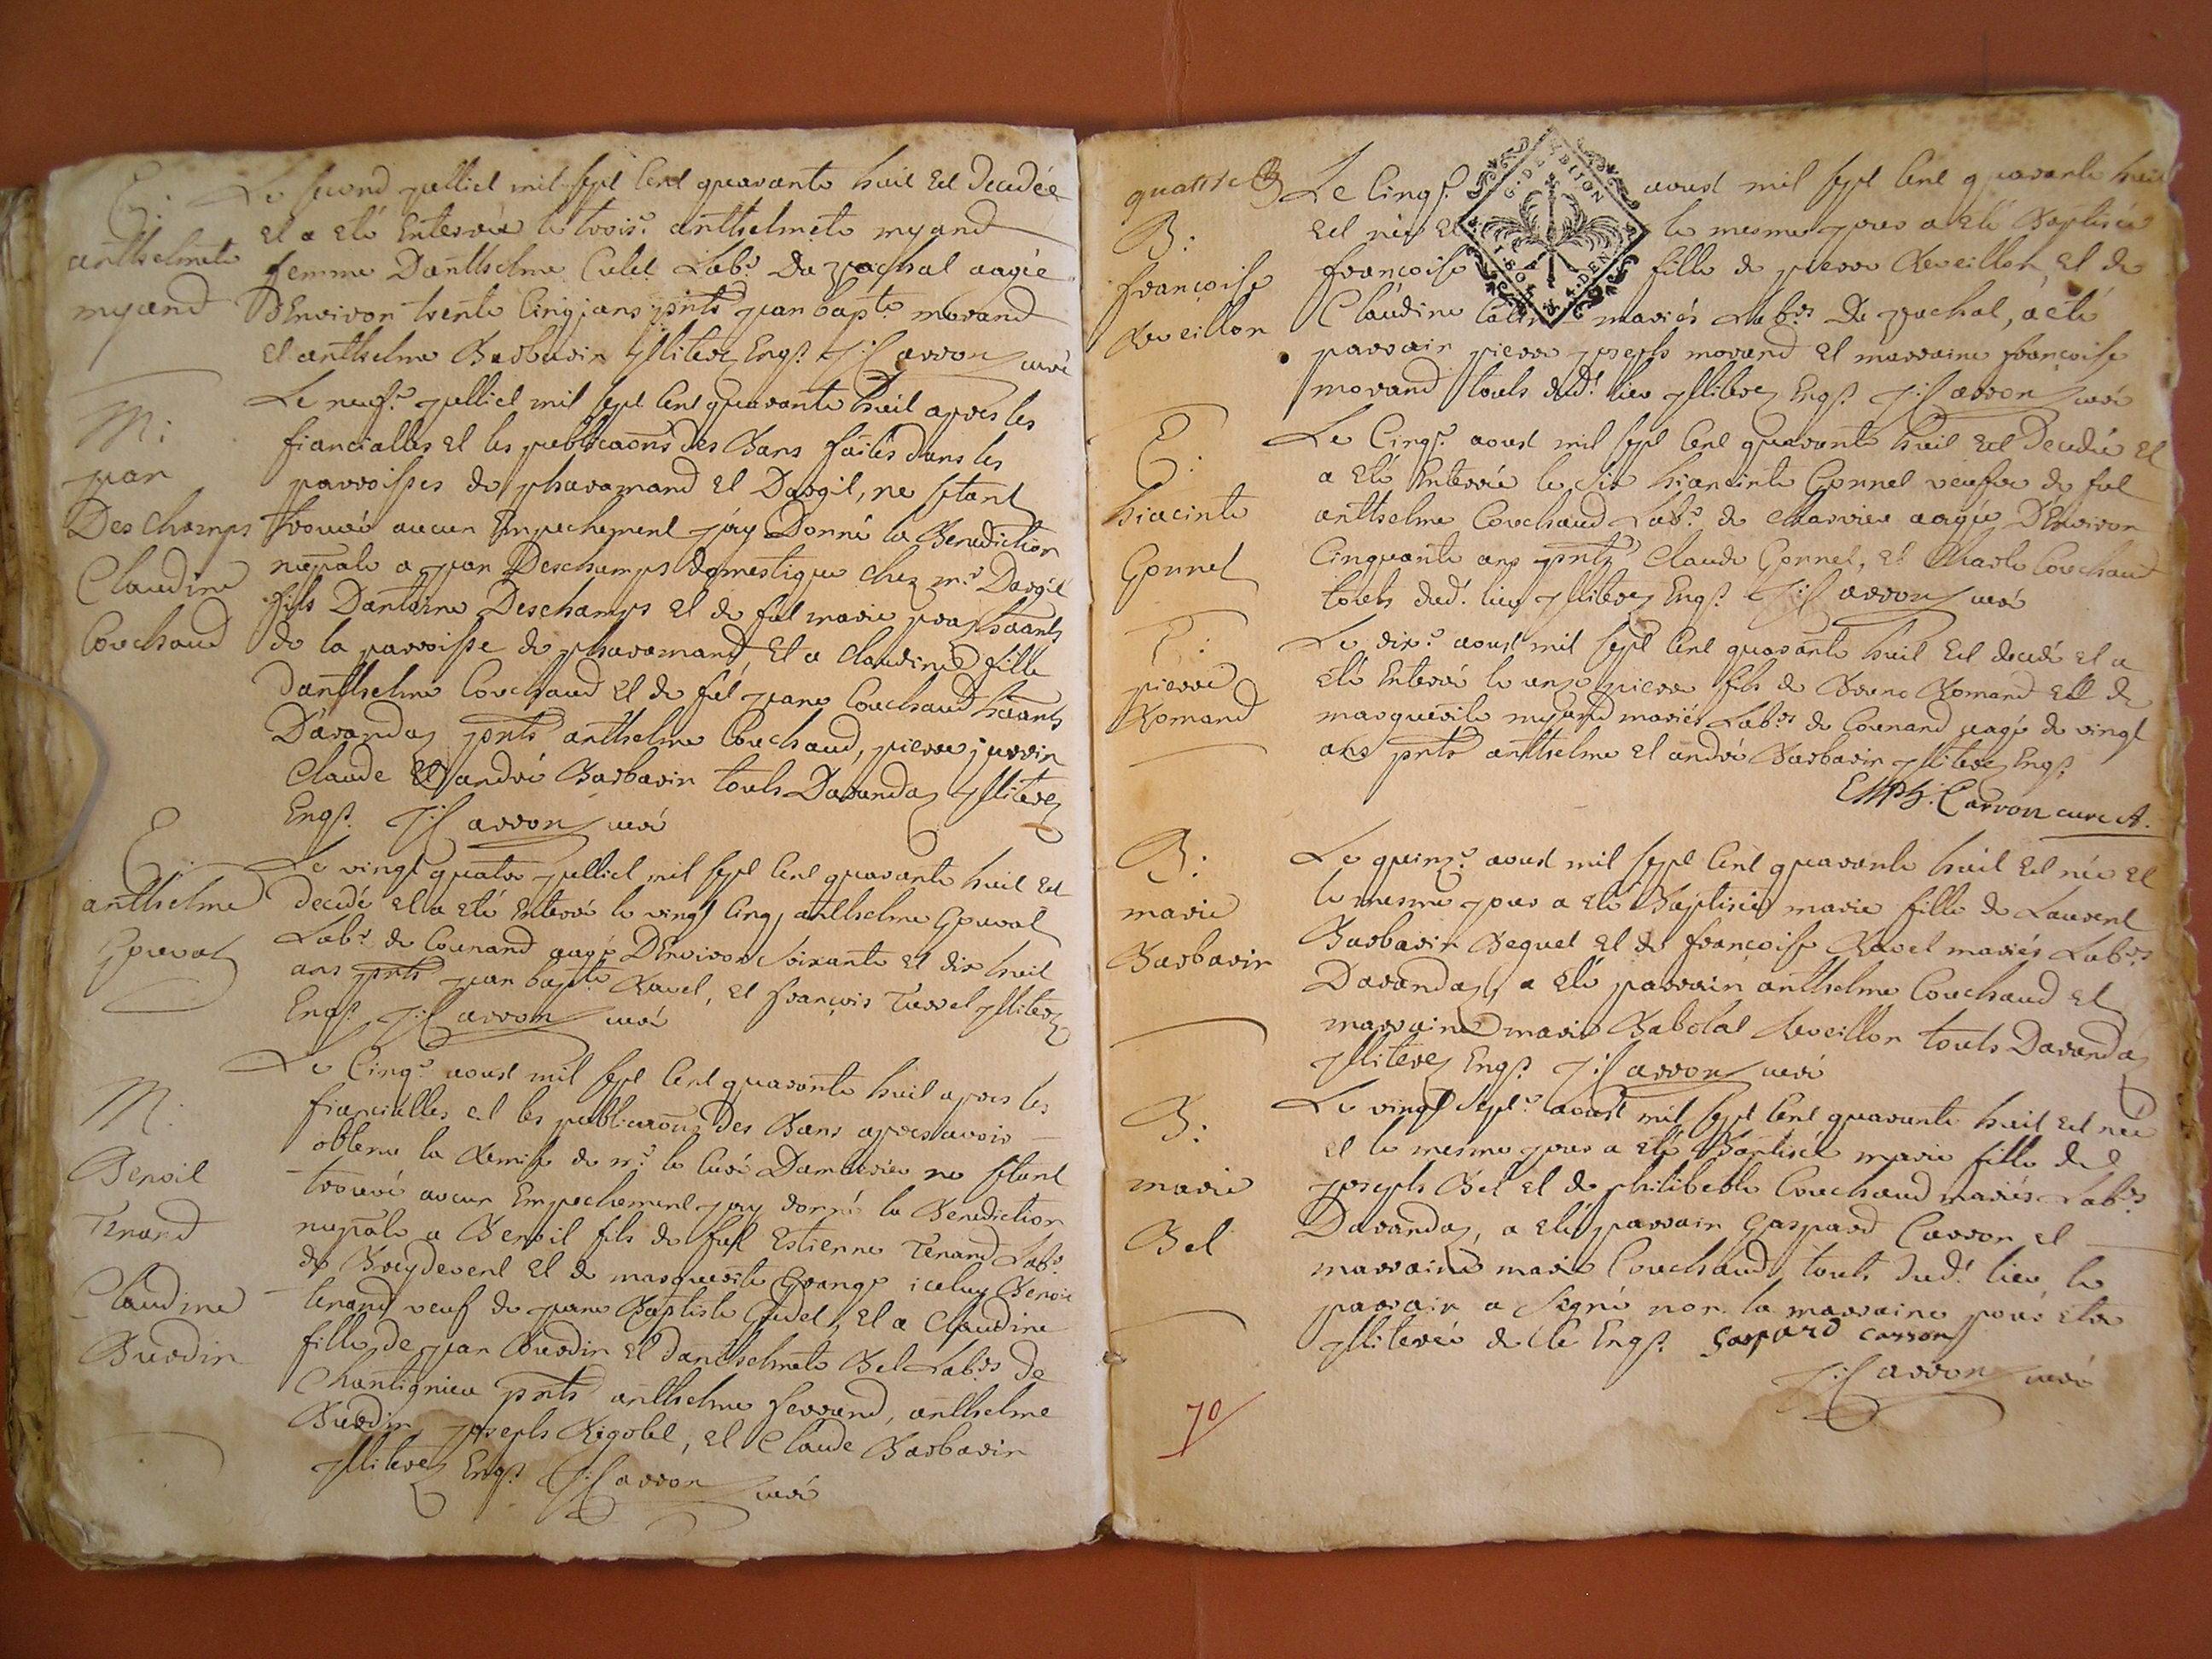 E:
anthelmete
myand
Le second julliet mil sept cent quarante huit est decedée
et a eté enterrée le trois.e anthelmete myand
femme d'anthelme Culet Lab.r de pachal aagée
d'environ trente cinq ans pnts jean bapt.e morand
et anthelme Barbarin illiterez enq.s J: Carron curé
M:
jean
Des champs
Claudine
Couchaud
Le neuf.e julliet mil sept cent quarante huit apres les
fiancialles et les publicaõns des Bans faites dans les
parroisses de pharamand et Dargil, ne setant
trouvé aucun empechement jay Donné la Benediction
nupale a jean Deschamps domestique chez m.r Dargil
fils Dantoine Deschamps et de fut marie
de la parroisse de pharamand, et a claudine fille
danthelme Couchaud et de fut jeane Couchaud
Darandaz pnts anthelme Couchaud, pierre juvvin
Claude et andré Barbarin touts Darandaz illiterez
enq.s J: Carron curé
E:
anthelme
Gouvat
Le vingt quatre julliet mil sept cent quarante huit est
decedé et a eté enterré le vingt cinq anthelme Gouvat
Lab.r de Counand aagé d'environ soixante et dix huit
ans pnts jean bapt.e Ravet, et françois Turrel illiterez
enq.s J: Carron curé
M:
Benoit
Tenand
Claudine
Burdin
Le cinq.e aoust mil sept cent quarante huit apres les
fiancialles et les publicaõns des Bans apres avoir
obtenu la Remise de m.r le curé Dambérieu ne setant
trouvé aucun empechement jay donné la Benediction
nupale a Benoit fils de fut Estienne Tenand Lab.r
de Breydevent et de marguerite Grange iceluy Benoit
tenand veuf de jeane Baptiste Gudet, et a Claudine
fille de jean Burdin et Danthelmete Bel Lab.rs de
Chantignieu pnts anthelme ferrand, anthelme
Burdin joseph Rigolet, et Claude Barbarin
illiterez enq.s J: Carron curé
quatorze
B:
françoise
Reveillon
Le Cinq.e aoust mil sept cent quarante huit
G. DE DIJON
est née et le mesme jour a eté Baptisée
françoise fille de pierre Reveillon et de
Claudine mariés Lab.rs de pachal, a eté
parrain pierre joseph morand et marraine françoise
morand touts dud.t lieu illiterez enq.s J: Carron curé
E:
hiacinte
Gonnet
Le Cinq.e aoust mil sept cent quarante huit est decedée et
a eté enterrée le six hiacinte Gonnet veufve de fut
anthelme Couchaud Lab.r de charvieu aagée d'environ
cinquante ans pntz Claude Gonnet, et Charle Couchaud
touts dud. lieu illiterez enq.s J: Carron curé
E:
pierre
Romand
Le dix.e aoust mil sept cent quarante huit est decedé et a
eté enterré le onze pierre fils de Bruno Romand et de
marguerite myand mariés Lab.rs de Counand aagé de vingt
ans pnts anthelme et andré Barbarin illiterez enq.s
Carron curé A.
B:
marie
Barbarin
Le quinz.e aoust mil sept cent quarante huit est née et
le mesme jour a eté Baptisée marie fille de Laurent
Barbarin Beguet et de françoise Ravet mariés Lab.rs
Darandaz, a eté parrain anthelme Couchaud et
marraine marie Babolat Reveillon touts Darandaz
illiterez enq.s J: Carron curé
B:
marie
Bel
Le vingt sept.e aoust mil sept cent quarante huit est née
et le mesme jour a eté Baptisée marie fille de
joseph Bel et de philiberte Couchaud mariés Lab.rs
Darandaz, a eté parrain Gaspard Carron et
marraine marie Couchaud touts dud.t lieu le
parrain a signé non la marraine pour etre
illiterée de ce enq.s gaspard carron
J: Carron curé
70